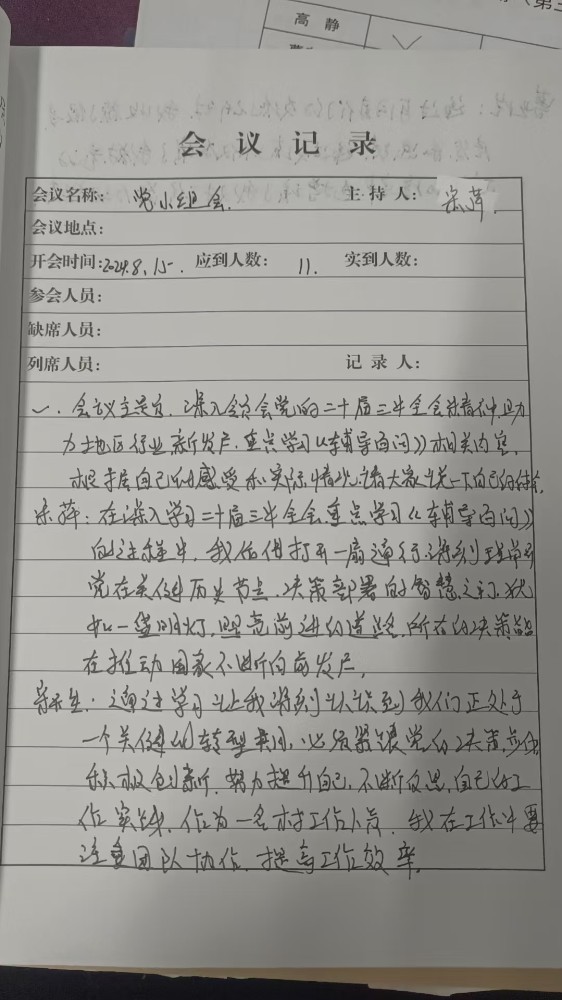 高 静
（第三
会 议 记 录
会议名称: 党小组会. 主 持 人: 宋萍.
会议地点:
开会时间: 2024.8.15. 应到人数: 11. 实到人数:
参会人员:
缺席人员:
列席人员: 记 录 人:
一. 会议主题是, 深入领会党的二十届三中全会精神, 助
力地区行业新发展. 重点学习《辅导百问》相关内容,
根据自己的感受和实际情况请大家谈一下自己的体会.
宋萍: 在深入学习二十届三中全会, 重点学习《辅导百问》
的过程中, 我仿佛打开一扇通行, 深刻理解
党在关键历史节点, 决策部署的智慧之门, 犹
如一盏明灯, 照亮前进的道路, 所有的决策都
在推动国家不断向前发展,
: 通过学习让我深刻认识到我们正处于
一个关键的转型期间, 必须紧跟党的决策步伐
积极创新, 努力提升自己, 不断反思, 自己的工
作实践, 作为一名村工作人员, 我在工作中要
注重团队协作, 提高工作效率.